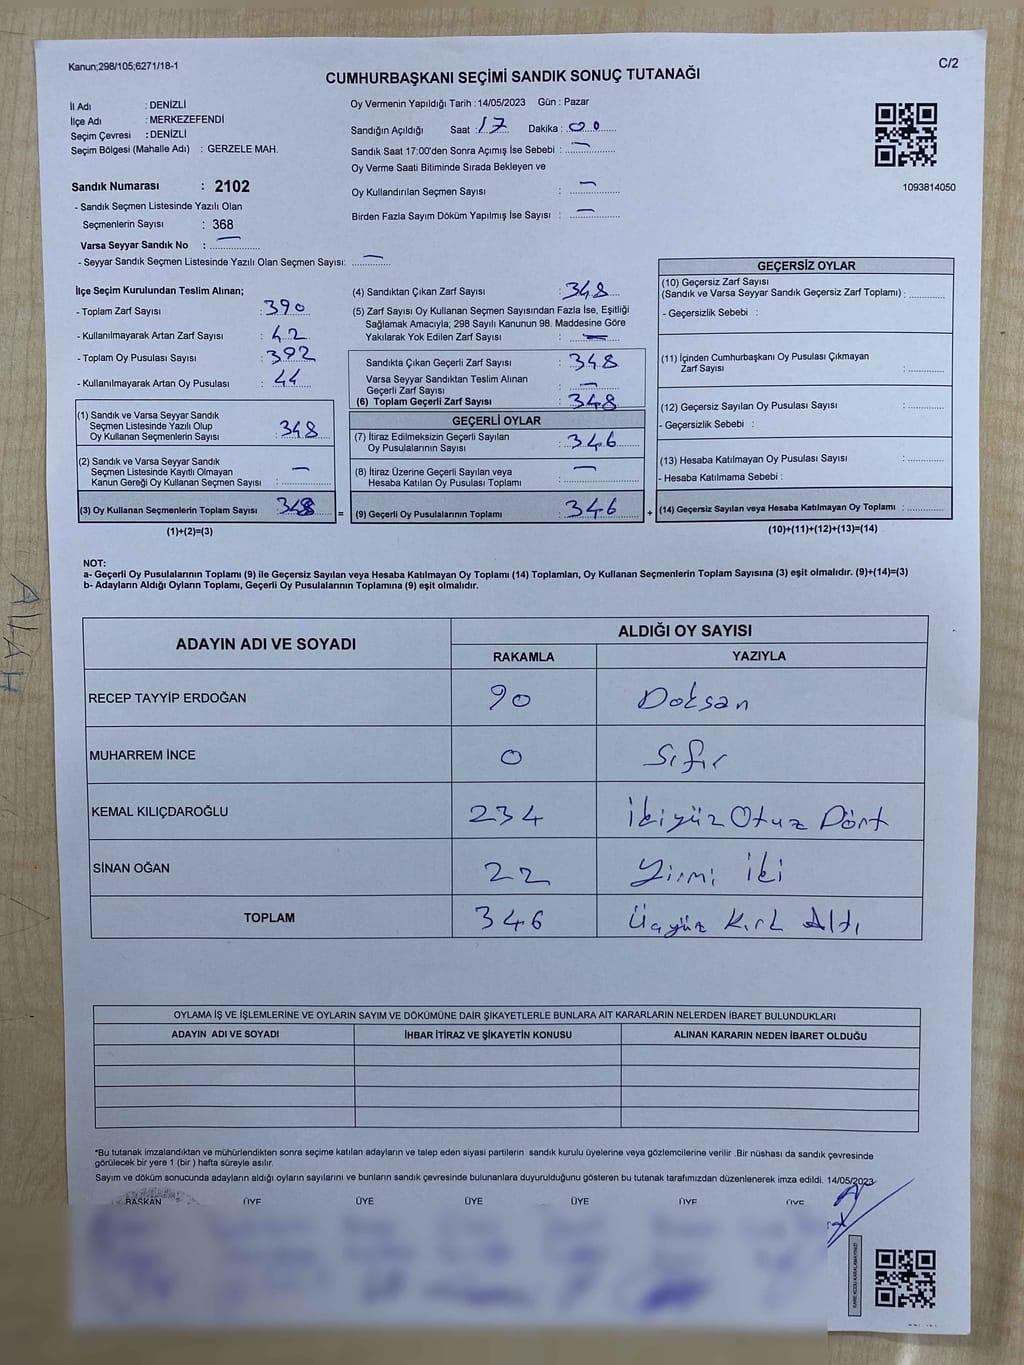 Kanun;298/105;6271/18-1
C/2
CUMHURBAŞKANI SEÇİMİ SANDIK SONUÇ TUTANAĞI
İl Adı : DENİZLİ
İlçe Adı : MERKEZEFENDİ
Seçim Çevresi : DENİZLİ
Seçim Bölgesi (Mahalle Adı) : GERZELE MAH.
Oy Vermenin Yapıldığı Tarih : 14/05/2023 Gün : Pazar
Sandığın Açıldığı Saat : 17 Dakika : 00
Sandık Saat 17:00'den Sonra Açımış İse Sebebi : —
Oy Verme Saati Bitiminde Sırada Bekleyen ve
Oy Kullandırılan Seçmen Sayısı : —
Birden Fazla Sayım Döküm Yapılmış İse Sayısı : —
1093814050
Sandık Numarası : 2102
- Sandık Seçmen Listesinde Yazılı Olan
Seçmenlerin Sayısı : 368
Varsa Seyyar Sandık No : —
- Seyyar Sandık Seçmen Listesinde Yazılı Olan Seçmen Sayısı: —
İlçe Seçim Kurulundan Teslim Alınan;
- Toplam Zarf Sayısı : 390
- Kullanılmayarak Artan Zarf Sayısı : 42
- Toplam Oy Pusulası Sayısı : 392
- Kullanılmayarak Artan Oy Pusulası : 44
(1) Sandık ve Varsa Seyyar Sandık
Seçmen Listesinde Yazılı Olup
Oy Kullanan Seçmenlerin Sayısı : 348
(2) Sandık ve Varsa Seyyar Sandık
Seçmen Listesinde Kayıtlı Olmayan
Kanun Gereği Oy Kullanan Seçmen Sayısı : —
(3) Oy Kullanan Seçmenlerin Toplam Sayısı : 348
(1)+(2)=(3)
(4) Sandıktan Çıkan Zarf Sayısı : 348
(5) Zarf Sayısı Oy Kullanan Seçmen Sayısından Fazla İse, Eşitliği
Sağlamak Amacıyla; 298 Sayılı Kanunun 98. Maddesine Göre
Yakılarak Yok Edilen Zarf Sayısı : —
Sandıkta Çıkan Geçerli Zarf Sayısı : 348
Varsa Seyyar Sandıktan Teslim Alınan
Geçerli Zarf Sayısı : —
(6) Toplam Geçerli Zarf Sayısı : 348
GEÇERLİ OYLAR
(7) İtiraz Edilmeksizin Geçerli Sayılan
Oy Pusulalarının Sayısı : 346
(8) İtiraz Üzerine Geçerli Sayılan veya
Hesaba Katılan Oy Pusulası Toplamı : —
= (9) Geçerli Oy Pusulalarının Toplamı : 346
GEÇERSİZ OYLAR
(10) Geçersiz Zarf Sayısı
(Sandık ve Varsa Seyyar Sandık Geçersiz Zarf Toplamı) :
- Geçersizlik Sebebi :
(11) İçinden Cumhurbaşkanı Oy Pusulası Çıkmayan
Zarf Sayısı :
(12) Geçersiz Sayılan Oy Pusulası Sayısı :
- Geçersizlik Sebebi :
(13) Hesaba Katılmayan Oy Pusulası Sayısı :
- Hesaba Katılmama Sebebi :
+ (14) Geçersiz Sayılan veya Hesaba Katılmayan Oy Toplamı :
(10)+(11)+(12)+(13)=(14)
NOT:
a- Geçerli Oy Pusulalarının Toplamı (9) ile Geçersiz Sayılan veya Hesaba Katılmayan Oy Toplamı (14) Toplamları, Oy Kullanan Seçmenlerin Toplam Sayısına (3) eşit olmalıdır. (9)+(14)=(3)
b- Adayların Aldığı Oyların Toplamı, Geçerli Oy Pusulalarının Toplamına (9) eşit olmalıdır.
ADAYIN ADI VE SOYADI
ALDIĞI OY SAYISI
RAKAMLA YAZIYLA
RECEP TAYYİP ERDOĞAN 90 Doksan
MUHARREM İNCE 0 Sıfır
KEMAL KILIÇDAROĞLU 234 İkiyüz Otuz Dört
SİNAN OĞAN 22 Yirmi İki
TOPLAM 346 Üçyüz Kırk Altı
OYLAMA İŞ VE İŞLEMLERİNE VE OYLARIN SAYIM VE DÖKÜMÜNE DAİR ŞİKAYETLERLE BUNLARA AİT KARARLARIN NELERDEN İBARET BULUNDUKLARI
ADAYIN ADI VE SOYADI İHBAR İTİRAZ VE ŞİKAYETİN KONUSU ALINAN KARARIN NEDEN İBARET OLDUĞU
*Bu tutanak imzalandıktan ve mühürlendikten sonra seçime katılan adayların ve talep eden siyasi partilerin sandık kurulu üyelerine veya gözlemcilerine verilir .Bir nüshası da sandık çevresinde
görülecek bir yere 1 (bir ) hafta süreyle asılır.
Sayım ve döküm sonucunda adayların aldığı oyların sayılarını ve bunların sandık çevresinde bulunanlara duyurulduğunu gösteren bu tutanak tarafımızdan düzenlenerek imza edildi. 14/05/2023
BAŞKAN ÜYE ÜYE ÜYE ÜYE ÜYE ÜYE
ALLAH